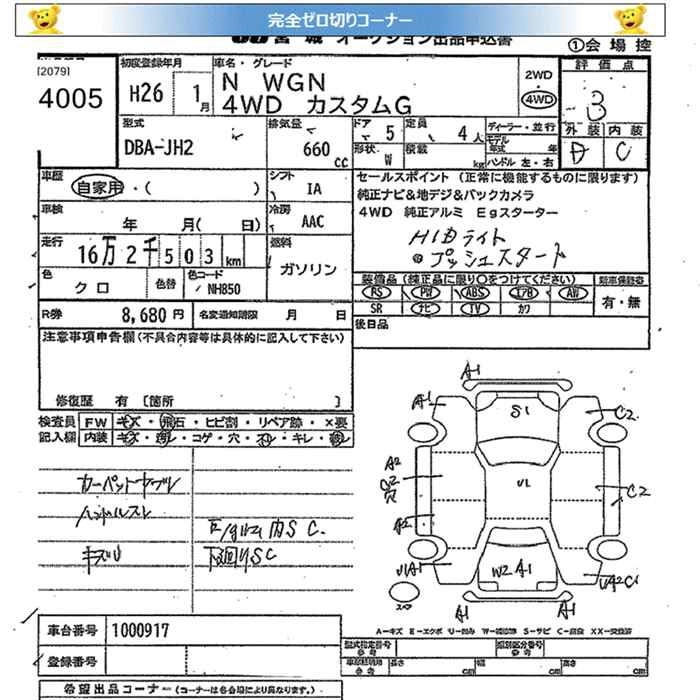 完全ゼロ切りコーナー
宮城 オークション出品申込書
①会場控
[2079]
4005
初度登録年月
H26 1月
車名・グレード
N WGN
4WD カスタムG
2WD
4WD
評価点
3
外装 内装
C
型式
DBA-JH2
排気量
660 cc
ドア 5
定員 4人
形状 W
積載 kg
ディーラー・並行
モデル年式 年
ハンドル 左・右
車歴
自家用・( )
シフト
IA
車検
年 月( 日)
冷房
AAC
走行
16万2千503km
燃料
ガソリン
色
クロ
色替
色コード
NH850
R券
8,680円
名変通知期限 月 日
セールスポイント (正常に機能するものに限ります)
純正ナビ&地デジ&バックカメラ
4WD 純正アルミ Egスターター
HIDライト
プッシュスタート
装備品 (純正品に限り○をつけてください)
新車保証書
有・無
PS PW ABS エアB AW
SR ナビ TV カワ
後日品
注意事項申告欄(不具合内容等は具体的に記入して下さい)
修復歴 有 [箇所 ]
検査員
記入欄
FW キズ・飛石・ヒビ割・リペア跡・×要
内装 キズ・汚レ・コゲ・穴・スレ・キレ
カーペットヤブレ
ハンドルスレ
キズU
内SC.
下廻りSC
A1
A1
S1
C2
A2
U1
C2
A2
W2 A1
UA2C1
スペア
A1
A1
A-キズ E-エクボ U-凹み W-補修跡 S-サビ C-腐食 XX-交換済
車台番号
1000917
登録番号
型式指定番号
参考
類別区分番号
参考
長さ cm
幅 cm
高さ cm
希望出品コーナー (コーナーは各会場により異なります。)